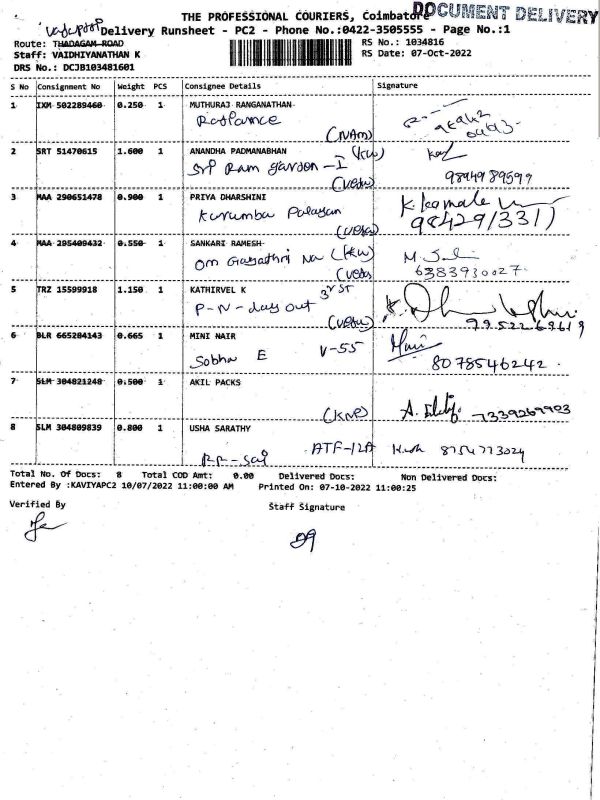 THE PROFESSIONAL COURIERS, Coimbatore
DOCUMENT DELIVERY
Delivery Runsheet - PC2 - Phone No.:0422-3505555 - Page No.:1
Route: THADAGAM ROAD
RS No.: 1034816
Staff: VAIDHIYANATHAN K
RS Date: 07-Oct-2022
DRS No.: DCJB103481601
S No Consignment No Weight PCS Consignee Details Signature
1 IXM 502289460 0.250 1 MUTHURAJ RANGANATHAN
2 SRT 51470615 1.600 1 ANANDHA PADMANABHAN (KW)
Sri Ram garden - I
9894989599
3 MAA 290651478 0.900 1 PRIYA DHARSHINI
Kurumba Palayan
K. Kamale
9842913311
4 MAA 295409432 0.550 1 SANKARI RAMESH
Om Gayathri Na (KW)
6383930027
5 TRZ 15599918 1.150 1 KATHIRVEL K
3rd ST
P-N-day out
9952269619
6 BLR 665204143 0.665 1 MINI NAIR
Sobha E V-55
8078546242
7 SLM 304821248 0.500 1 AKIL PACKS
7339269903
8 SLM 304809839 0.800 1 USHA SARATHY
ATF-12A
8754773024
Total No. Of Docs: 8 Total COD Amt: 0.00 Delivered Docs: Non Delivered Docs:
Entered By :KAVIYAPC2 10/07/2022 11:00:00 AM Printed On: 07-10-2022 11:00:25
Verified By Staff Signature